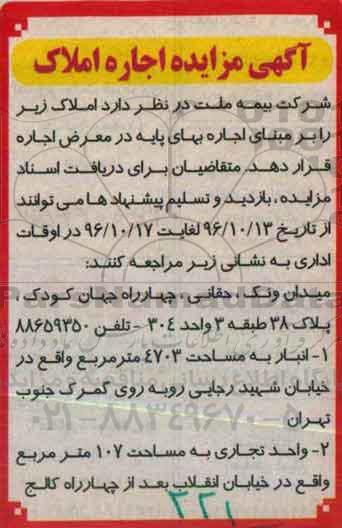 آگهی مزایده اجاره املاک
شرکت بیمه ملت در نظر دارد املاک زیر
را بر مبنای اجاره بهای پایه در معرض اجاره
قرار دهد. متقاضیان برای دریافت اسناد
مزایده ، بازدید و تسلیم پیشنهاد ها می توانند
از تاریخ ۹۶/۱۰/۱۳ لغایت ۹۶/۱۰/۱۷ در اوقات
اداری به نشانی زیر مراجعه کنند:
میدان ونک ، حقانی ، چهارراه جهان کودک ،
پلاک ۳۸ طبقه ۳ واحد ۳۰۴ - تلفن ۸۸۶۵۹۳۵۰
۱- انبار به مساحت ۴۷۰۳ مترمربع واقع در
خیابان شهید رجایی روبه روی گمرک جنوب
تهران
۰۲۱-۸۸۳۴۹۶۷۰-۵
۲- واحد تجاری به مساحت ۱۰۷ متر مربع
واقع در خیابان انقلاب بعد از چهارراه کالج
۳۲۲۱